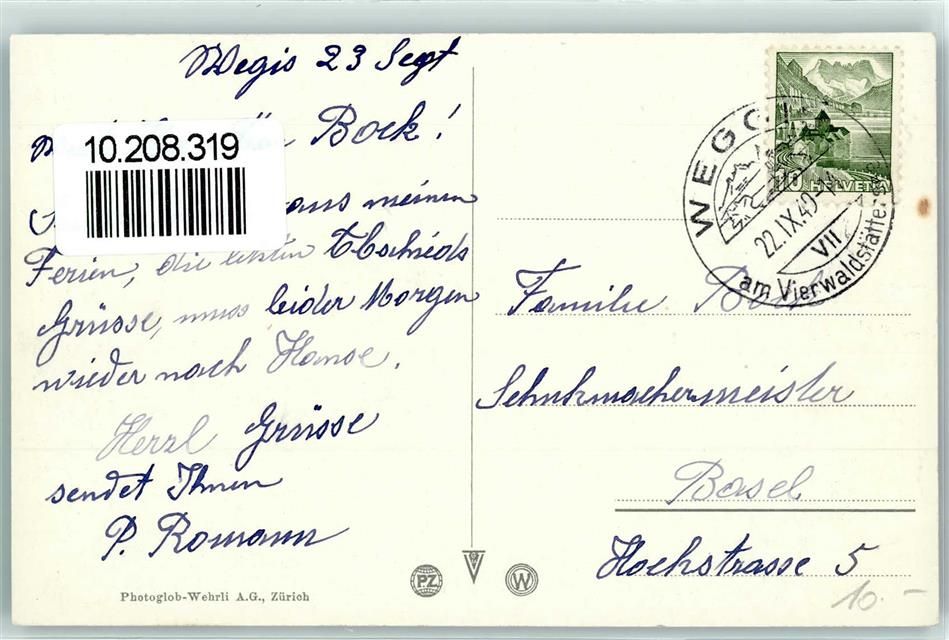 Wegis 23 Sept
Bock!
10.208.319
aus meinen
Ferien, die letzten Abschieds
Grüsse, muss leider Morgen
wieder nach Hause.
Herzl Grüsse
sendet Ihnen
P. Romann
Photoglob-Wehrli A.G., Zürich
PZ
W
WEGGIS
22.IX.40
VII
am Vierwaldstättersee
10 HELVETIA
Familie Bock
Schuhmachermeister
Basel
Hochstrasse 5
10.-